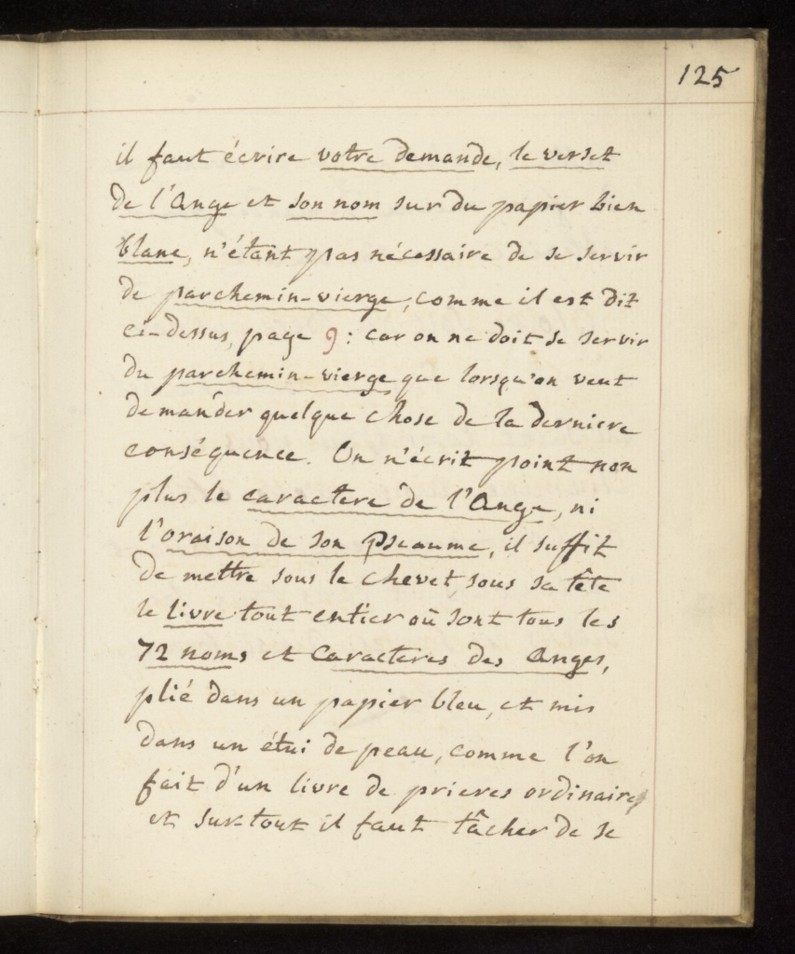 125
il faut écrire votre demande, le verset
de l'Ange et son nom sur du papier bien
blanc, n'étant pas nécessaire de se servir
de parchemin-vierge, comme il est dit
ci-dessus, page 9 : car on ne doit se servir
du parchemin-vierge que lorsqu'on veut
demander quelque chose de la derniere
conséquence. On n'écrit point non
plus le caractere de l'Ange, ni
l'oraison de son Pseaume, il suffit
de mettre sous le chevet, sous sa tête
le livre tout entier où sont tous les
72 noms et Caracteres des Anges,
plié dans un papier bleu, et mis
dans un étui de peau, comme l'on
fait d'un livre de prieres ordinaires
et sur-tout il faut tâcher de se